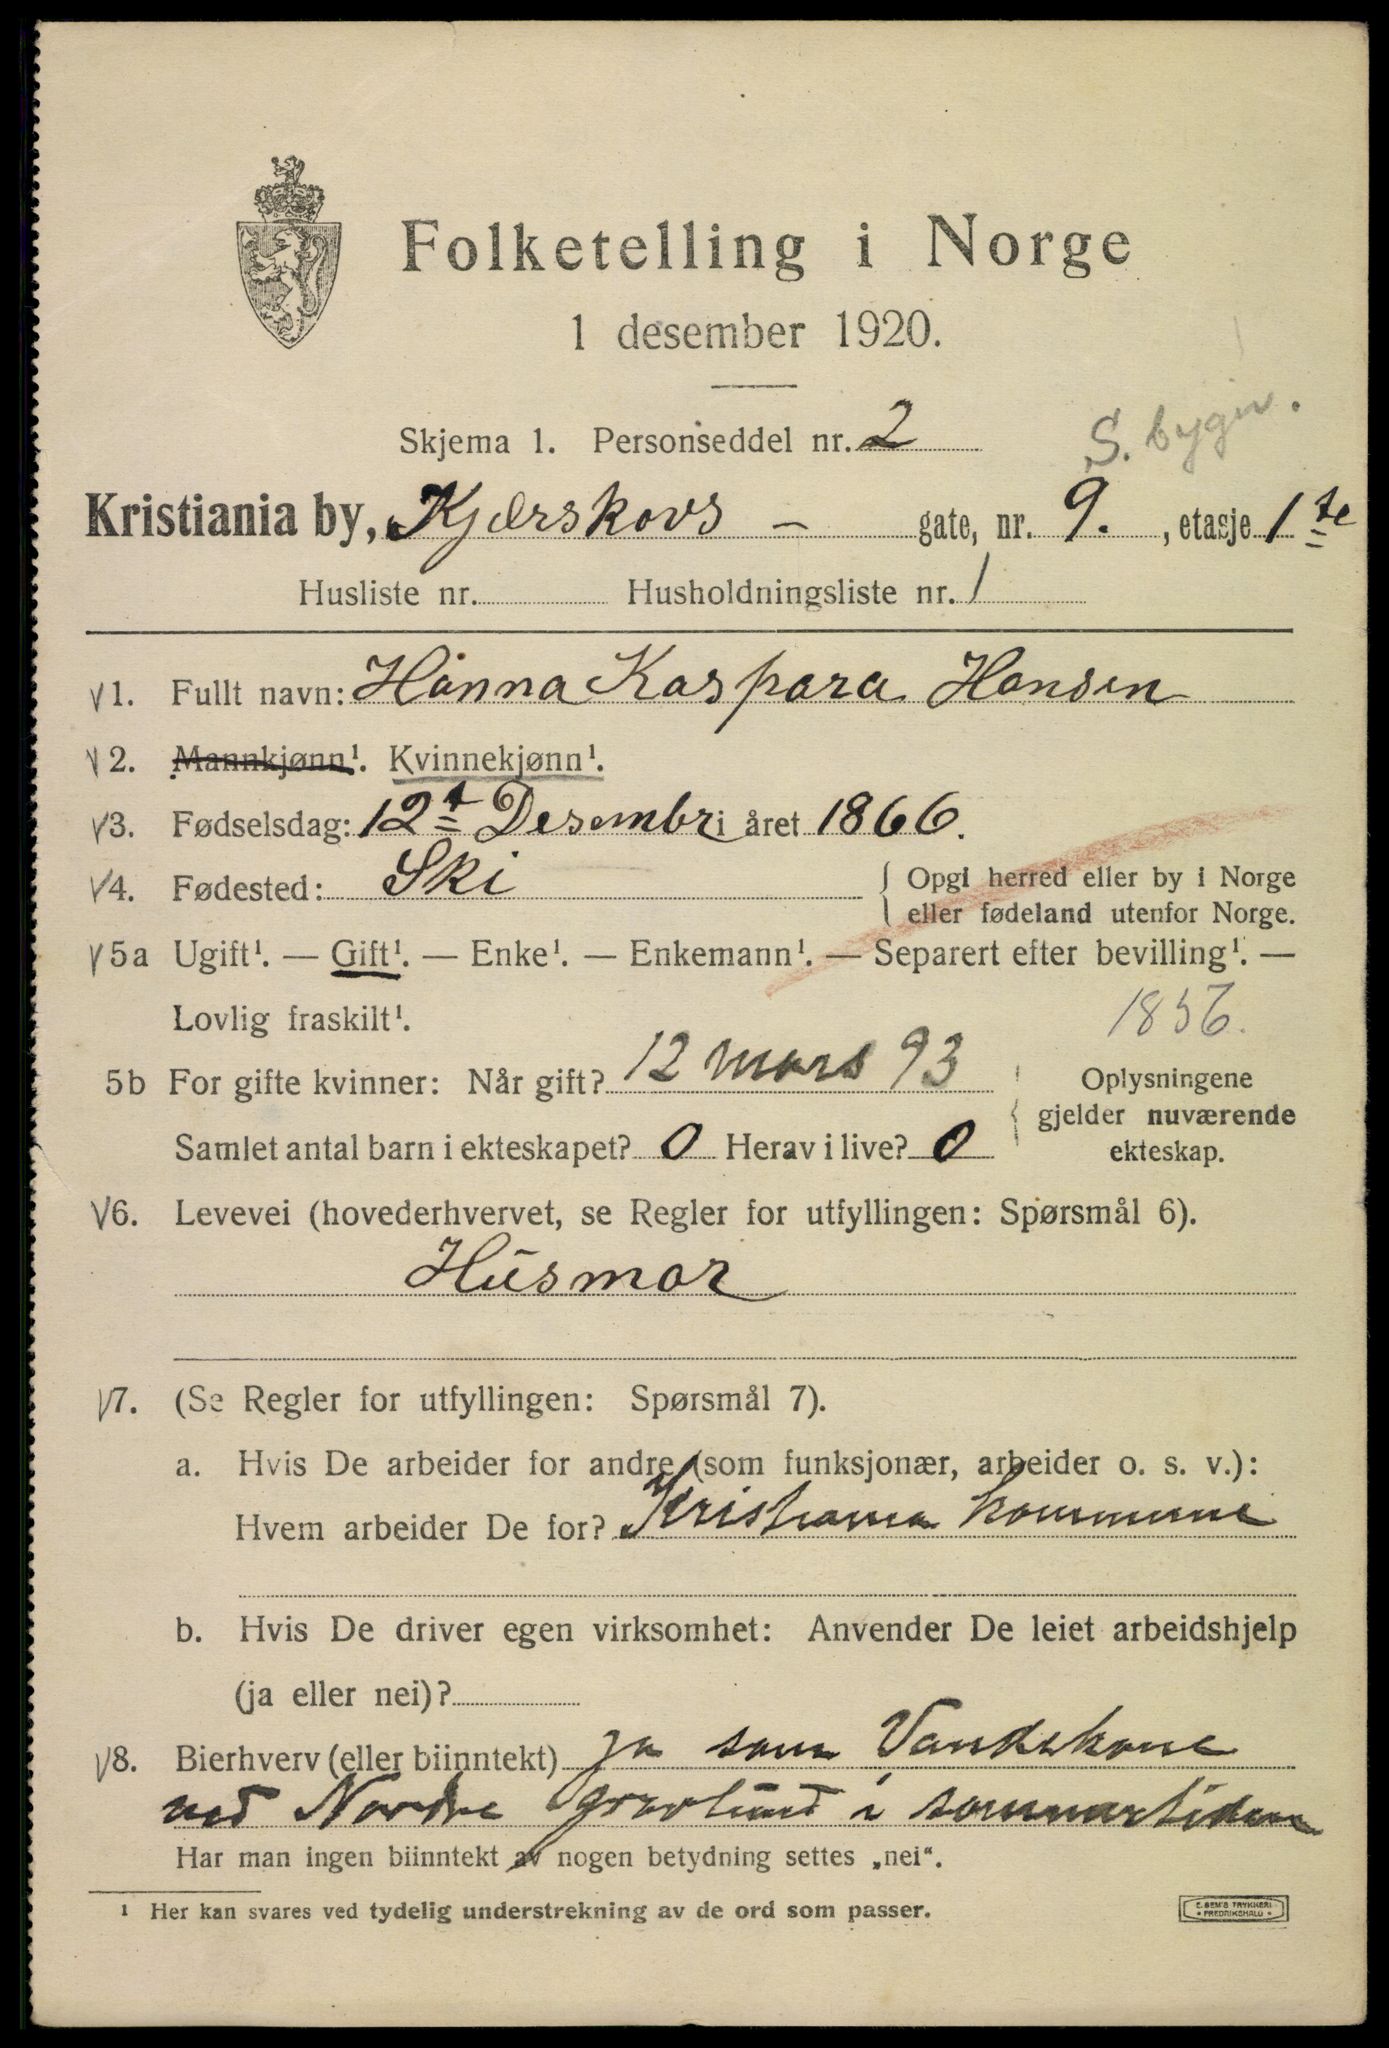 Folketelling i Norge
1 desember 1920.
Skjema 1. Personseddel nr. 2
S. bygn.
Kristiania by, Kjærskovs – gate, nr. 9. , etasje 1te
Husliste nr. Husholdningsliste nr. 1
V1. Fullt navn: Hanna Kaspara Hansen
V2. Mannkjønn¹. Kvinnekjønn¹.
V3. Fødselsdag: 12t Desembr i året 1866.
V4. Fødested: Ski { Opgi herred eller by i Norge
eller fødeland utenfor Norge.
V5a Ugift¹. — Gift¹. — Enke¹. — Enkemann¹. — Separert efter bevilling¹. —
Lovlig fraskilt¹. 1856.
5b For gifte kvinner: Når gift? 12 mars 93 Oplysningene
gjelder nuværende
Samlet antal barn i ekteskapet? 0 Herav i live? 0 ekteskap.
V6. Levevei (hovederhvervet, se Regler for utfyllingen: Spørsmål 6).
Husmor
V7. (Se Regler for utfyllingen: Spørsmål 7).
a. Hvis De arbeider for andre (som funksjonær, arbeider o. s. v.):
Hvem arbeider De for? Kristiania kommune
b. Hvis De driver egen virksomhet: Anvender De leiet arbeidshjelp
(ja eller nei)?
V8. Bierhverv (eller biinntekt) ja som Vandekone
ved Nordre gravlund i sommertiden
Har man ingen biinntekt av nogen betydning settes „nei“.
1 Her kan svares ved tydelig understrekning av de ord som passer.
E. SEM'S TRYKKERI
• FREDRIKSHALD •